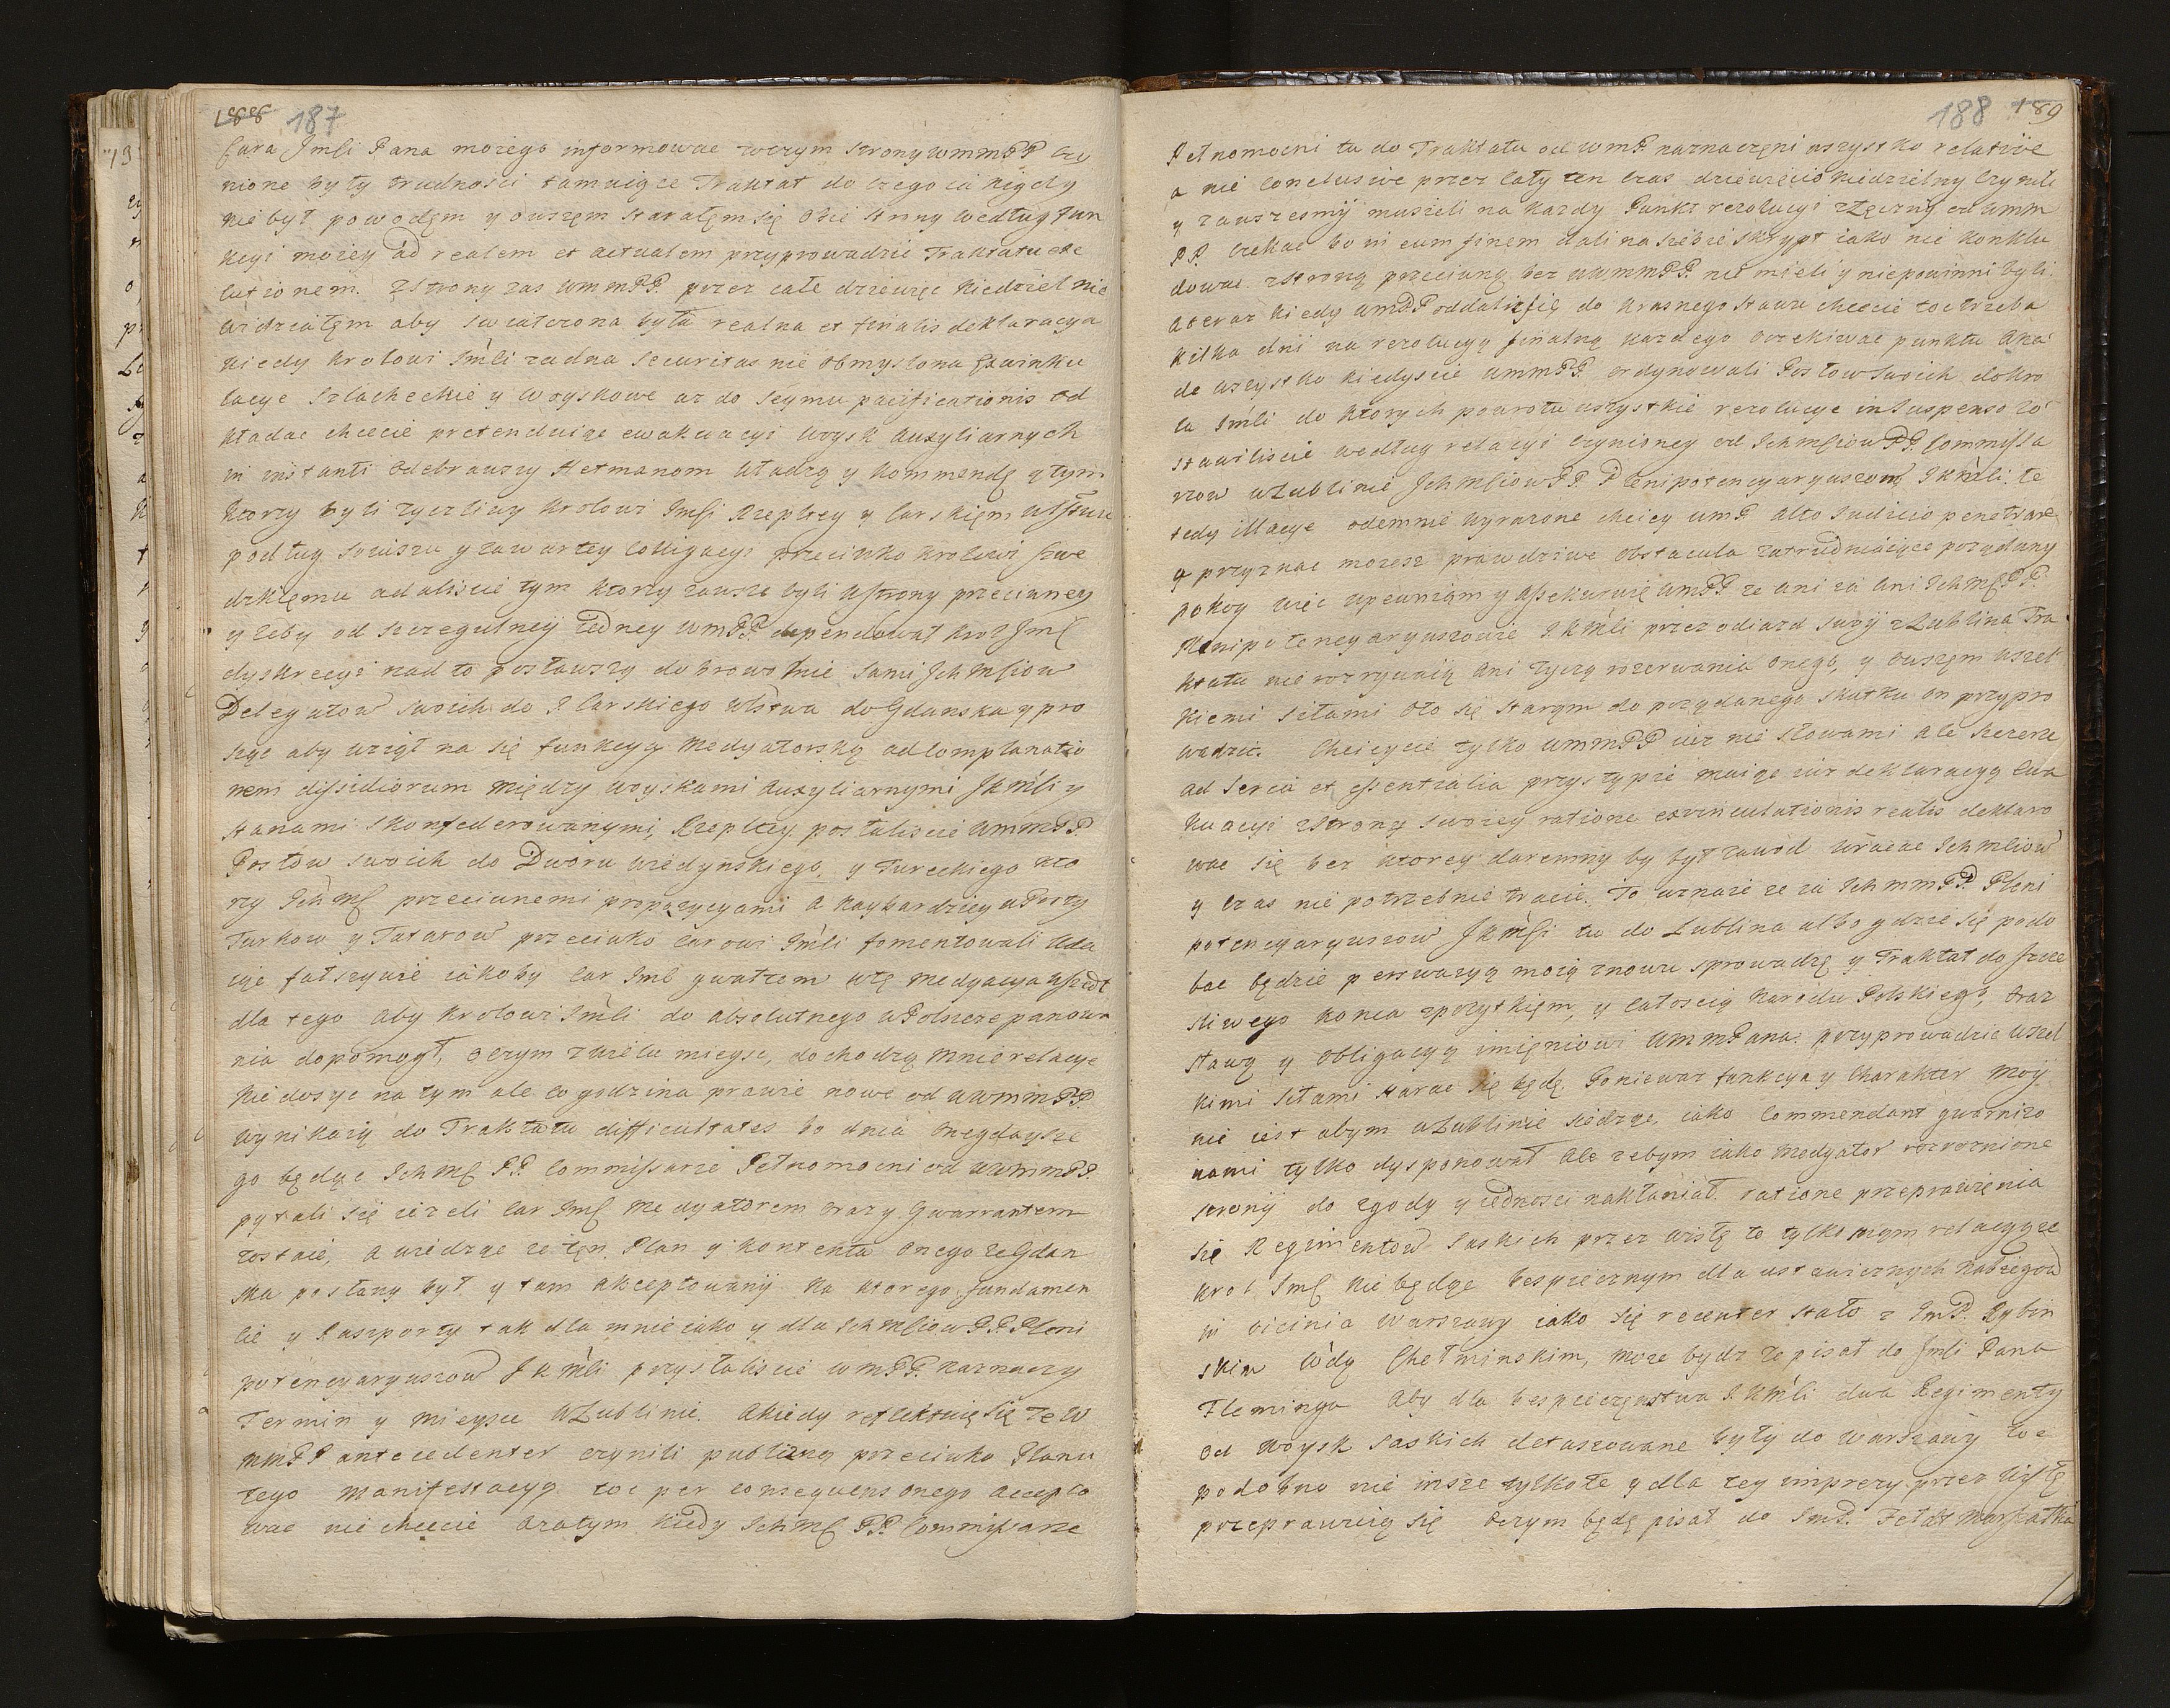 188 187
Cara Jmsci Pana moiego informowac wczym strony wmmPP czy
nione były trudnosci tamuiące Traktat do czego ia nigdy
nie był powodęm y owszęm starałęm się obie strony według fun
kcyi moiey ad realem et actualem przyprowadzic Traktatu exe
cutionem. zstrony zas wmmPP. przez całe dziewięc niedziel nie
widziałęm aby swiatczona była realna et finalis deklaracya
kiedy krolowi Jmsci zadna securitas nie obmyslona Exwinku
lacye szlacheckie y woyskowe az do seymu pacificationis od
kładac chcecie pretenduiąc ewakuacyi woysk auxyliarnych
in instanti odebrawszy Hetmanom władzę y kommendę y tym
ktorzy byli zyczliwy krolowi Jmsci Rzepltey y Carskięmu
podług soiuszu y zawartey colligacyi przeciwko krolowi Szwe
dzkięmu oddaliscie tym ktorzy zawsze byli ustrony przeciwney
y zeby od szczegulney iedney wmPP. dependował krol Jmsc
dyskrecyi nad to posławszy dobrowolnie sami Jchmsciow
Delegatow swoich do J Carskiego wstwa do Gdanska y pro
sząc aby wziął na się funkcyą Medyatorską ad complanatio
nem dissidiorum między woyskami auxyliarnymi JKmsci y
stanami skonfederowanymi Rzepltey posłaliscie wmmPP.
Posłow swoich do Dworu wiedynskiego, y Tureckiego kto
rzy Jchmsc przeciwnemi propozycyami a naybardziey uPorty
Turkow y Tatarow przeciwko Carowi Jmsci fomentowali uda
iąc fałszywie iakoby Car Jmsc gwałtem wtę medyacya wszedł
dla tego aby krolowi Jmsci do absolutnego wPolszcze panowa
nia dopomogł, oczym zwielu mieysc, dochodzą mnie relacye
nie dosyc na tym ale co godzina prawie nowe od uwmmPP
wynikaią do Traktatu difficultates bo dnia onegdaysze
go będąc Jchmsc PP. Commissarze Pełnomocni od uwmmPP.
pytali się iezeli Car Jmsc Medyatorem czazy Gwarrantem
zostaie, a wiedząc ze tęn Plan y kontenta onego zeGdan
ska posłany był y tam akceptowany na ktorego fundamen
cie y Paszporty tak dla mnie iako y dla Jchmsciow PP. Pleni
potencyaryuszow JKmsci przysłaliscie wmPP. naznaczy
Termin y mieysce wLublinie. a kiedy reflektuię się ze w
mmPP antecedenter czynili publiczną przeciwko Planu
tego manifestacyą toc per consequens onego accepto
wac nie chcecie oratym kiedy Jchmsc PP. Commissarze
188 189
Pełnomocni tu do Traktatu od wmP. naznaczęni wszystko relative
a nie conclusive przez cały ten czas dziewięcioniedzielny czynili
y zawszesmy musieli na kazdy Punkt rezolucyi złęczny od wmm
PP. czekac bo in eum finem dali na siebie skrypt iako nie konklu
dowac zstroną przeciwną bez uwmmPP. nie mieli y niepowinni byli.
a teraz kiedy wmPP oddalic się do krasnego stawu chcecie toc trzeba
kilka dni na rezolucyą finalną kazdego oczekiwac punktu
de wszystko kiedyscie wmmPP. ordynowali Posłow swoich dokro
la Jmsci do ktorych powrotu wszystkie rezolucye in suspenso zo
stawiliscie według relacyi czynioney od Jchmsciow PP. Commissa
rzow wLublinie Jchmsciow PP. Plenipotencyaryuszom JKmsci. te
tedy illacye odemnie wyrazone chciey wmP. alto iudicio penetrare
y przyznac mozesz prawdziwe obstacula zatrudniaiące poządany
pokoy więc upewniam y assekuruię wmPP ze ani ia ani Jchmsc PP.
Plenipotencyaryuszowie JKmsci przez odiazd swoy zLublina Tra
ktatu nie rozrywaią ani zyczą rozerwania onego, y owszęm wszel
kiemi siłami oto się starąm do poządanego skutku on przypro
wadzic. Chcieycie tylko wmmPP iuz nie słowami ale szczerze
ad seria et essentialia przystąpic maiąc iuz deklaracyą ewa
kuacyi zstrony swoiey ratione exvinculationis realis deklaro
wac się bez ktorey daremny by był zawod wracac Jchmsciow
y czas nie potrzebnie tracic. To uznacie ze ia JchmmPP. Pleni
potencyaryuszow JKmsci tu do Lublina albo gdzie się podo
bac będzie perswazyą moią znowu sprowadzę y Traktat do szczę
sliwego konca zpozytkięm, y całoscią Narodu Polskiego, oraz
sławą y obligacyą imięniowi wmmPana. przyprowadzic wszel
kimi siłami starac się będę. Poniewaz funkcya y Charakter moy
nie iest abym wLublinie siedząc, iako Commendant gwarnizo
nami tylko dysponował ale zebym iako Medyator rozroznione
strony do zgody y iednosci nakłaniał. ratione przeprawięnia
się Regimentow Saskich przez wisłę to tylko mąm relacyą ze
krol Jmsc nie będąc bespiecznym dla ustawicznych nabiegow
in vicinia Warszawy iako się recenter stało z JmP. Rybin
skim wdą Chełminskim, moze bydz ze pisał do Jmsci Pana
Fleminga aby dla bespieczęnstwa JKmsci dwa Regimenty
od woysk saskich detaszowane były do Warszawy toc
podobno nie insze tylko te y dla tey imprezy przez wisłę
przeprawuią się oczym będę pisał do JmP. Feldt Marszałka